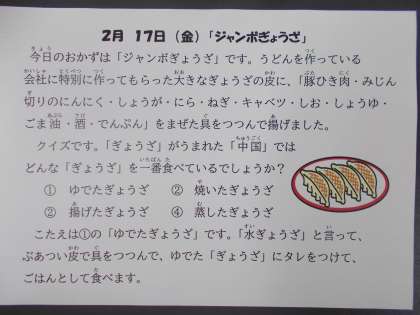 2月 17日（金）「ジャンボぎょうざ」
今日のおかずは「ジャンボぎょうざ」です。うどんを作っている
会社に特別に作ってもらった大きなぎょうざの皮に、「豚ひき肉・みじん
切りのにんにく・しょうが・にら・ねぎ・キャベツ・しお・しょうゆ・
ごま油・酒・でんぷん」をまぜた具をつつんで揚げました。
クイズです。「ぎょうざ」がうまれた「中国」では
どんな「ぎょうざ」を一番食べているでしょうか？
① ゆでたぎょうざ ② 焼いたぎょうざ
② 揚げたぎょうざ ④ 蒸したぎょうざ
こたえは①の「ゆでたぎょうざ」です。「水ぎょうざ」と言って、
ぶあつい皮で具をつつんで、ゆでた「ぎょうざ」にタレをつけて、
ごはんとして食べます。